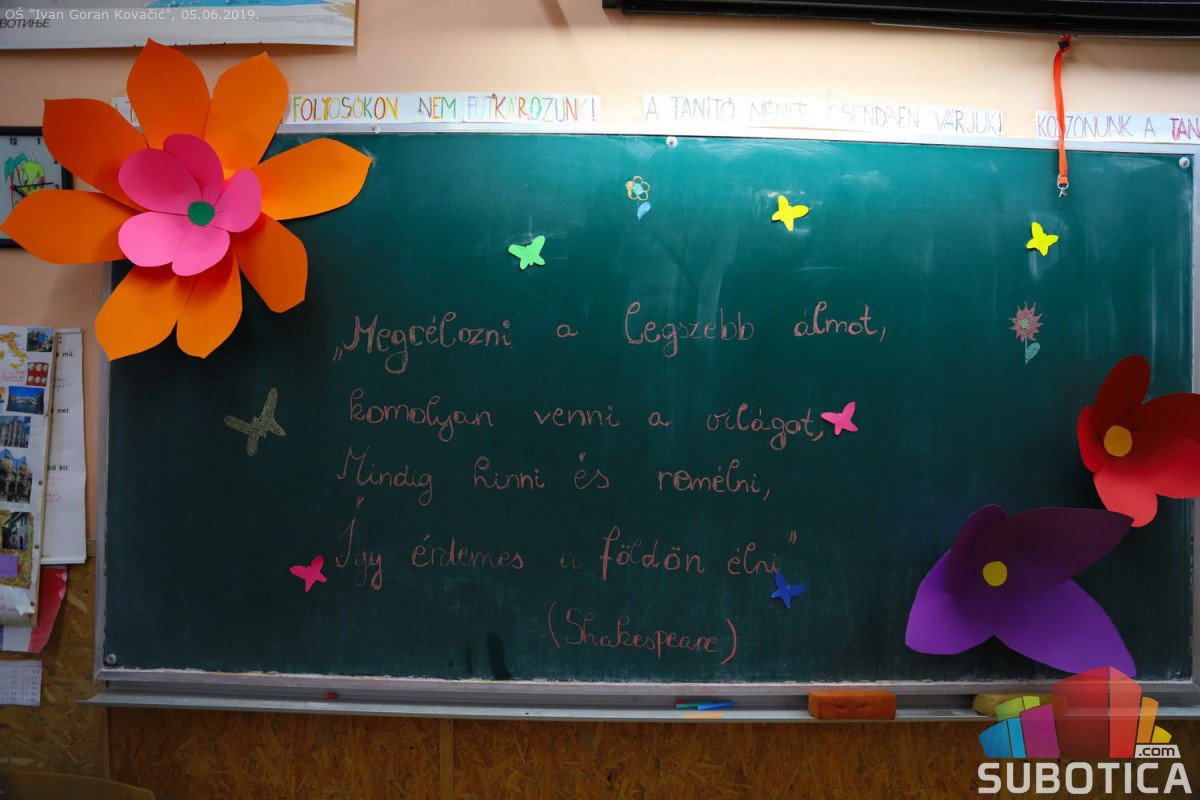 OŠ "Ivan Goran Kovačić", 05.06.2019.
ВОТИЊЕ
FOLYOSÓKON NEM FUTKÁROZUNK!
A TANÍTÓ NÉNIT CSENDBEN VÁRJUK!
KÖSZÖNÜNK A TAN
„Megcélozni a legszebb álmot,
komolyan venni a világot,
Mindig hinni és remélni,
Így érdemes a földön élni"
(Shakespeare)
mü.
mel.
bil.
.com
SUBOTICA